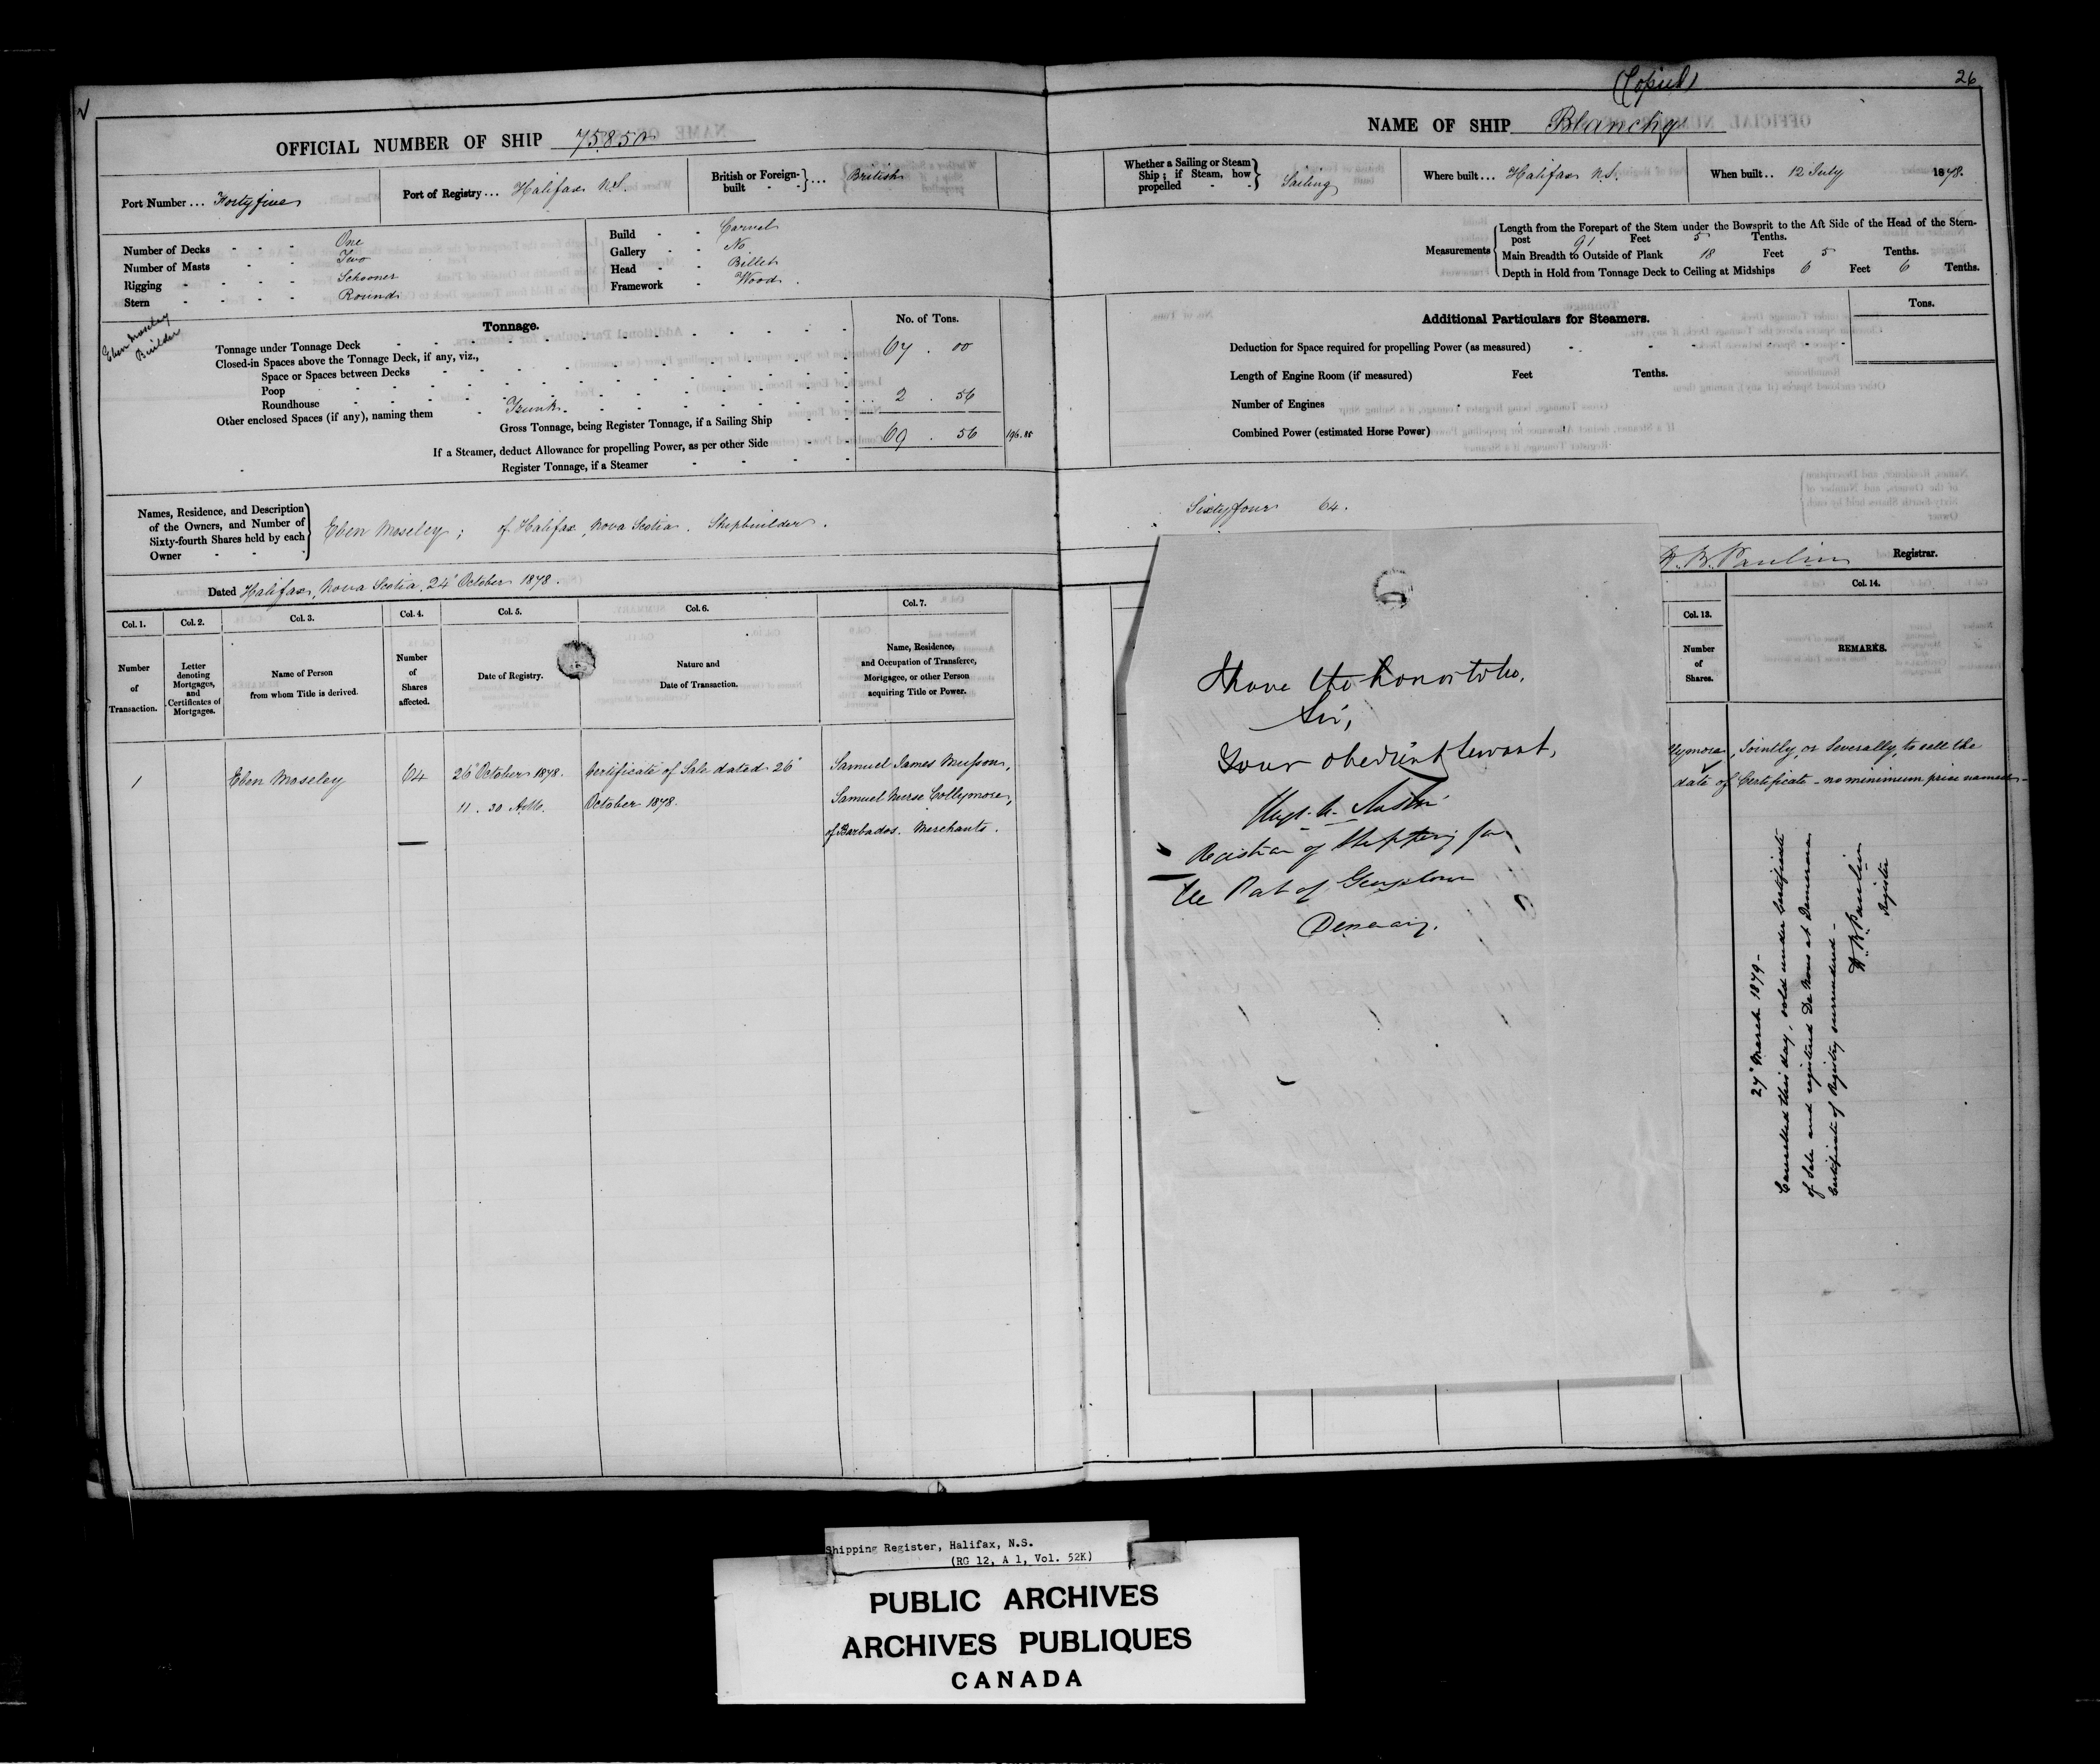 (Copied)
26
OFFICIAL NUMBER OF SHIP 75850
NAME OF SHIP Blanche
Port Number ... Fortyfive
Port of Registry ... Halifax N.S.
British or Foreign-built ... British
Whether a Sailing or Steam Ship; if Steam, how propelled Sailing
Where built ... Halifax N.S.
When built .. 12 July 1878.
Number of Decks One
Number of Masts Two
Rigging Schooner
Stern Round
Build Carvel
Gallery No
Head Billet
Framework Wood
Measurements
Length from the Forepart of the Stem under the Bowsprit to the Aft Side of the Head of the Stern-
post 91 Feet 5 Tenths.
Main Breadth to Outside of Plank 18 Feet 5 Tenths.
Depth in Hold from Tonnage Deck to Ceiling at Midships 6 Feet 6 Tenths.
Eben Moseley
Builder
Tonnage.
No. of Tons.
Tonnage under Tonnage Deck 67 . 00
Closed-in Spaces above the Tonnage Deck, if any, viz.,
Space or Spaces between Decks
Poop
Roundhouse
Other enclosed Spaces (if any), naming them Trunk. 2 . 56
Gross Tonnage, being Register Tonnage, if a Sailing Ship 69 . 56 196.85
If a Steamer, deduct Allowance for propelling Power, as per other Side
Register Tonnage, if a Steamer
Additional Particulars for Steamers.
Tons.
Deduction for Space required for propelling Power (as measured)
Length of Engine Room (if measured) Feet Tenths.
Number of Engines
Combined Power (estimated Horse Power)
Names, Residence, and Description
of the Owners, and Number of
Sixty-fourth Shares held by each
Owner
Eben Moseley; of Halifax, Nova Scotia. Shipbuilder.
Sixtyfour 64.
Dated Halifax, Nova Scotia. 24 October 1878.
Registrar.
Col. 1.
Col. 2.
Col. 3.
Col. 4.
Col. 5.
Col. 6.
Col. 7.
Col. 13.
Col. 14.
Number of Transaction.
Letter denoting Mortgages, and Certificates of Mortgages.
Name of Person from whom Title is derived.
Number of Shares affected.
Date of Registry.
Nature and Date of Transaction.
Name, Residence, and Occupation of Transferee, Mortgagee, or other Person acquiring Title or Power.
Number of Shares.
REMARKS.
1
Eben Moseley
64
26 October 1878.
11 . 30 A.M.
Certificate of Sale dated 26
October 1878.
Samuel James Musson,
Samuel Nurse Collymore,
of Barbados. Merchants.
llymore, Jointly, or Severally, to sell the
date of Certificate - no minimum price named -
27 March 1879 -
Cancelled this day, sold under Certificate
of Sale and registered De Novo at Demerara
Certificate of Registry surrendered -
Registrar
I have the honor to be,
Sir,
Your obedient Servant,
Registrar of Shipping for
the Port of Georgetown
Shipping Register, Halifax, N.S.
(RG 12, A 1, Vol. 52K)
PUBLIC ARCHIVES
ARCHIVES PUBLIQUES
CANADA